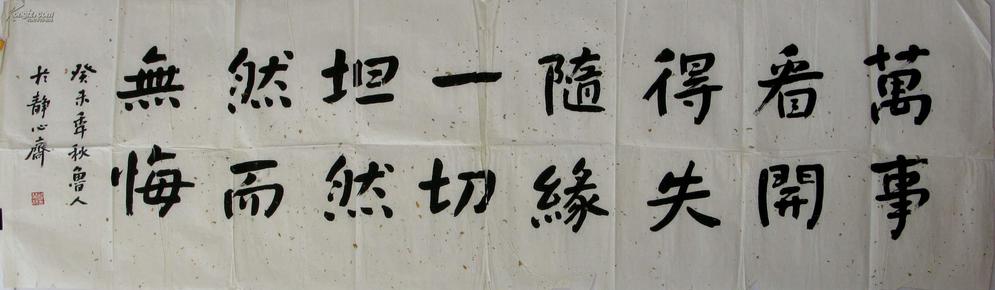 萬事
看開
得失
隨緣
一切
坦然
然而
無悔
癸未年秋魯人
於靜心齋